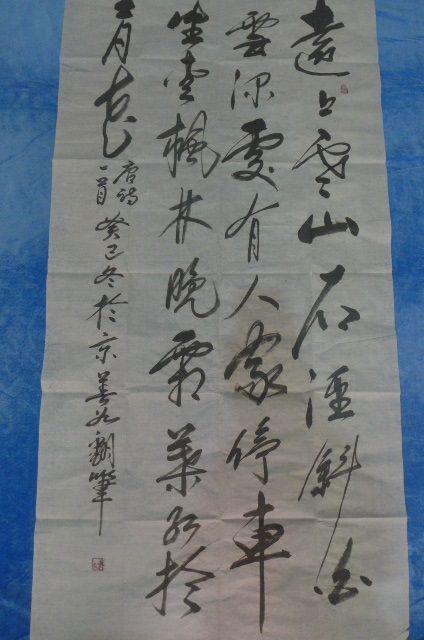 遠上寒山石徑斜白
雲深處有人家停車
坐愛楓林晚霜葉紅於
二月花
唐詩
一首 癸巳冬於京